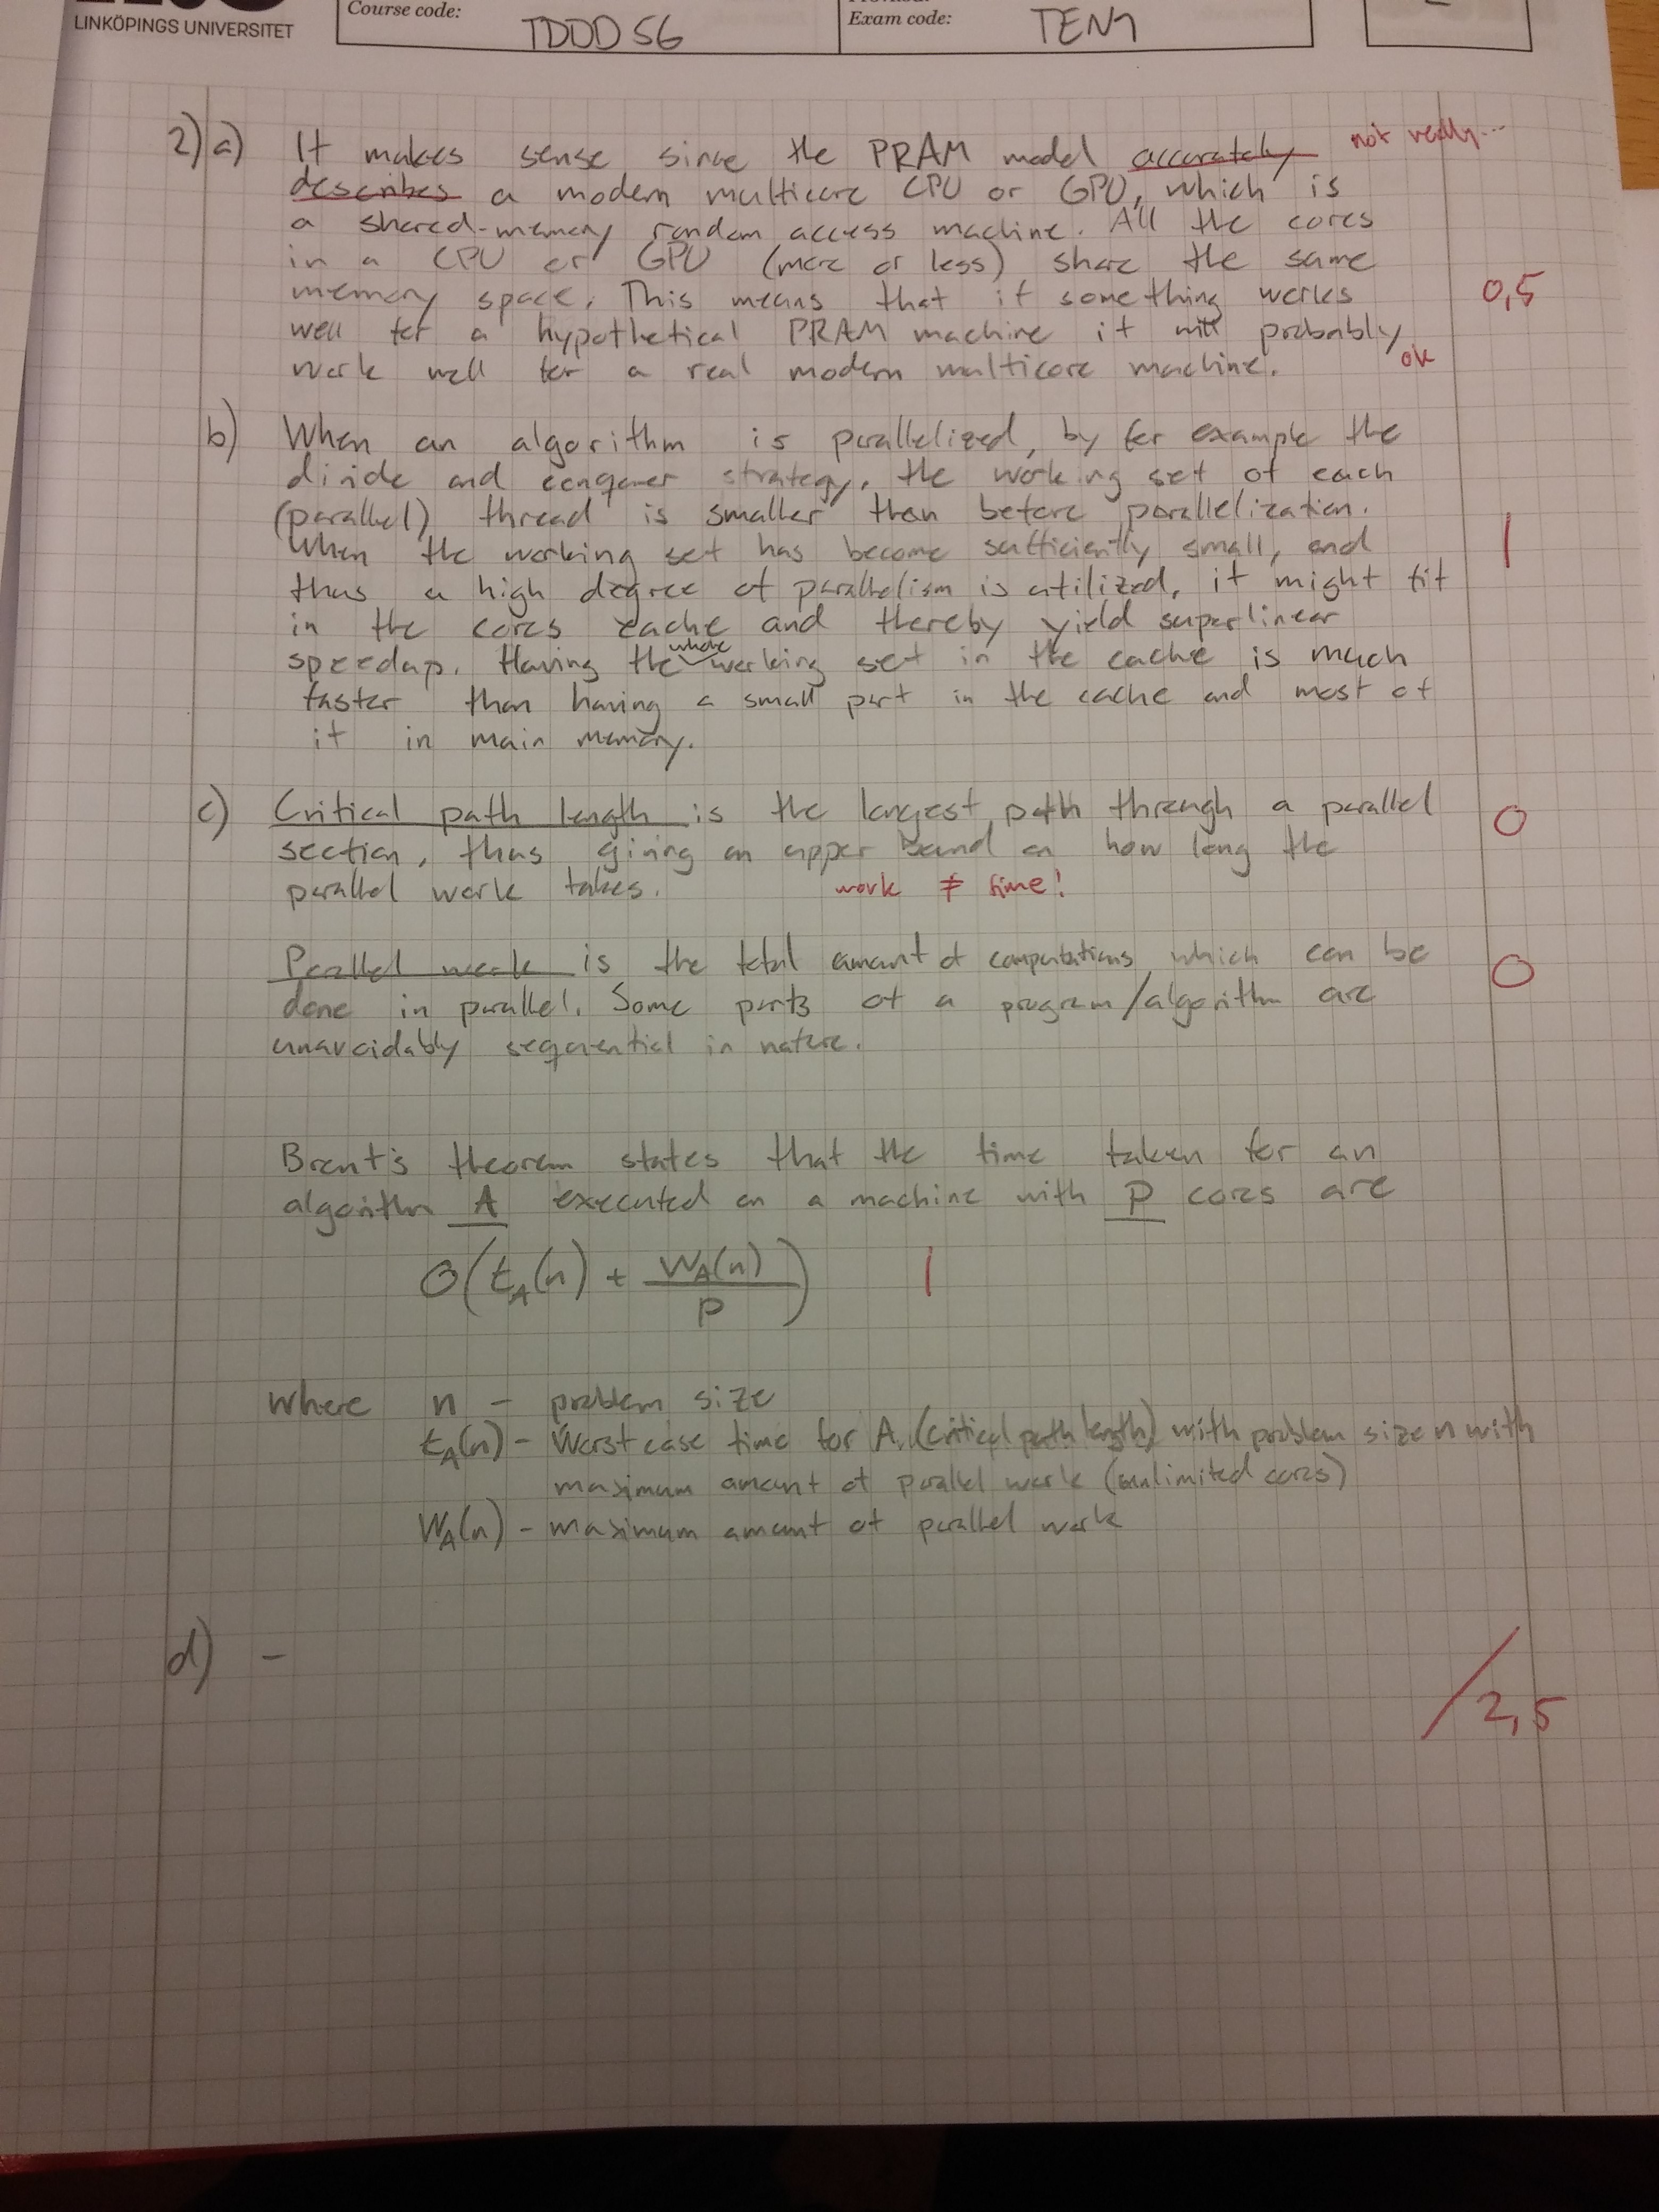 LINKÖPINGS UNIVERSITET
Course code:
TDDD56
Exam code:
TEN1
2) a) It makes sense since the PRAM model accurately not really...
describes a modern multicore CPU or GPU, which is
a shared-memory random access machine. All the cores
in a CPU or GPU (more or less) share the same
memory space. This means that if something works 0,5
well for a hypothetical PRAM machine it will probably
work well for a real modern multicore machine. ok
b) When an algorithm is parallelized, by for example the
divide and conquer strategy, the working set of each
(parallel) thread is smaller than before parallelization.
When the working set has become sufficiently small, and 1
thus a high degree of parallelism is utilized, it might fit
in the cores cache and thereby yield superlinear
speedup. Having the whole working set in the cache is much
faster than having a small part in the cache and most of
it in main memory.
c) Critical path length is the longest path through a parallel 0
section, thus giving an upper bound on how long the
parallel work takes. work ≠ time!
Parallel work is the total amount of computations which can be 0
done in parallel. Some parts of a program/algorithm are
unavoidably sequential in nature.
Brent's theorem states that the time taken for an
algorithm A executed on a machine with P cores are
O(t_A(n) + W_A(n)/P) 1
where n - problem size
t_A(n) - Worst case time for A (critical path length) with problem size n with
maximum amount of parallel work (unlimited cores)
W_A(n) - maximum amount of parallel work
d) -
/2,5